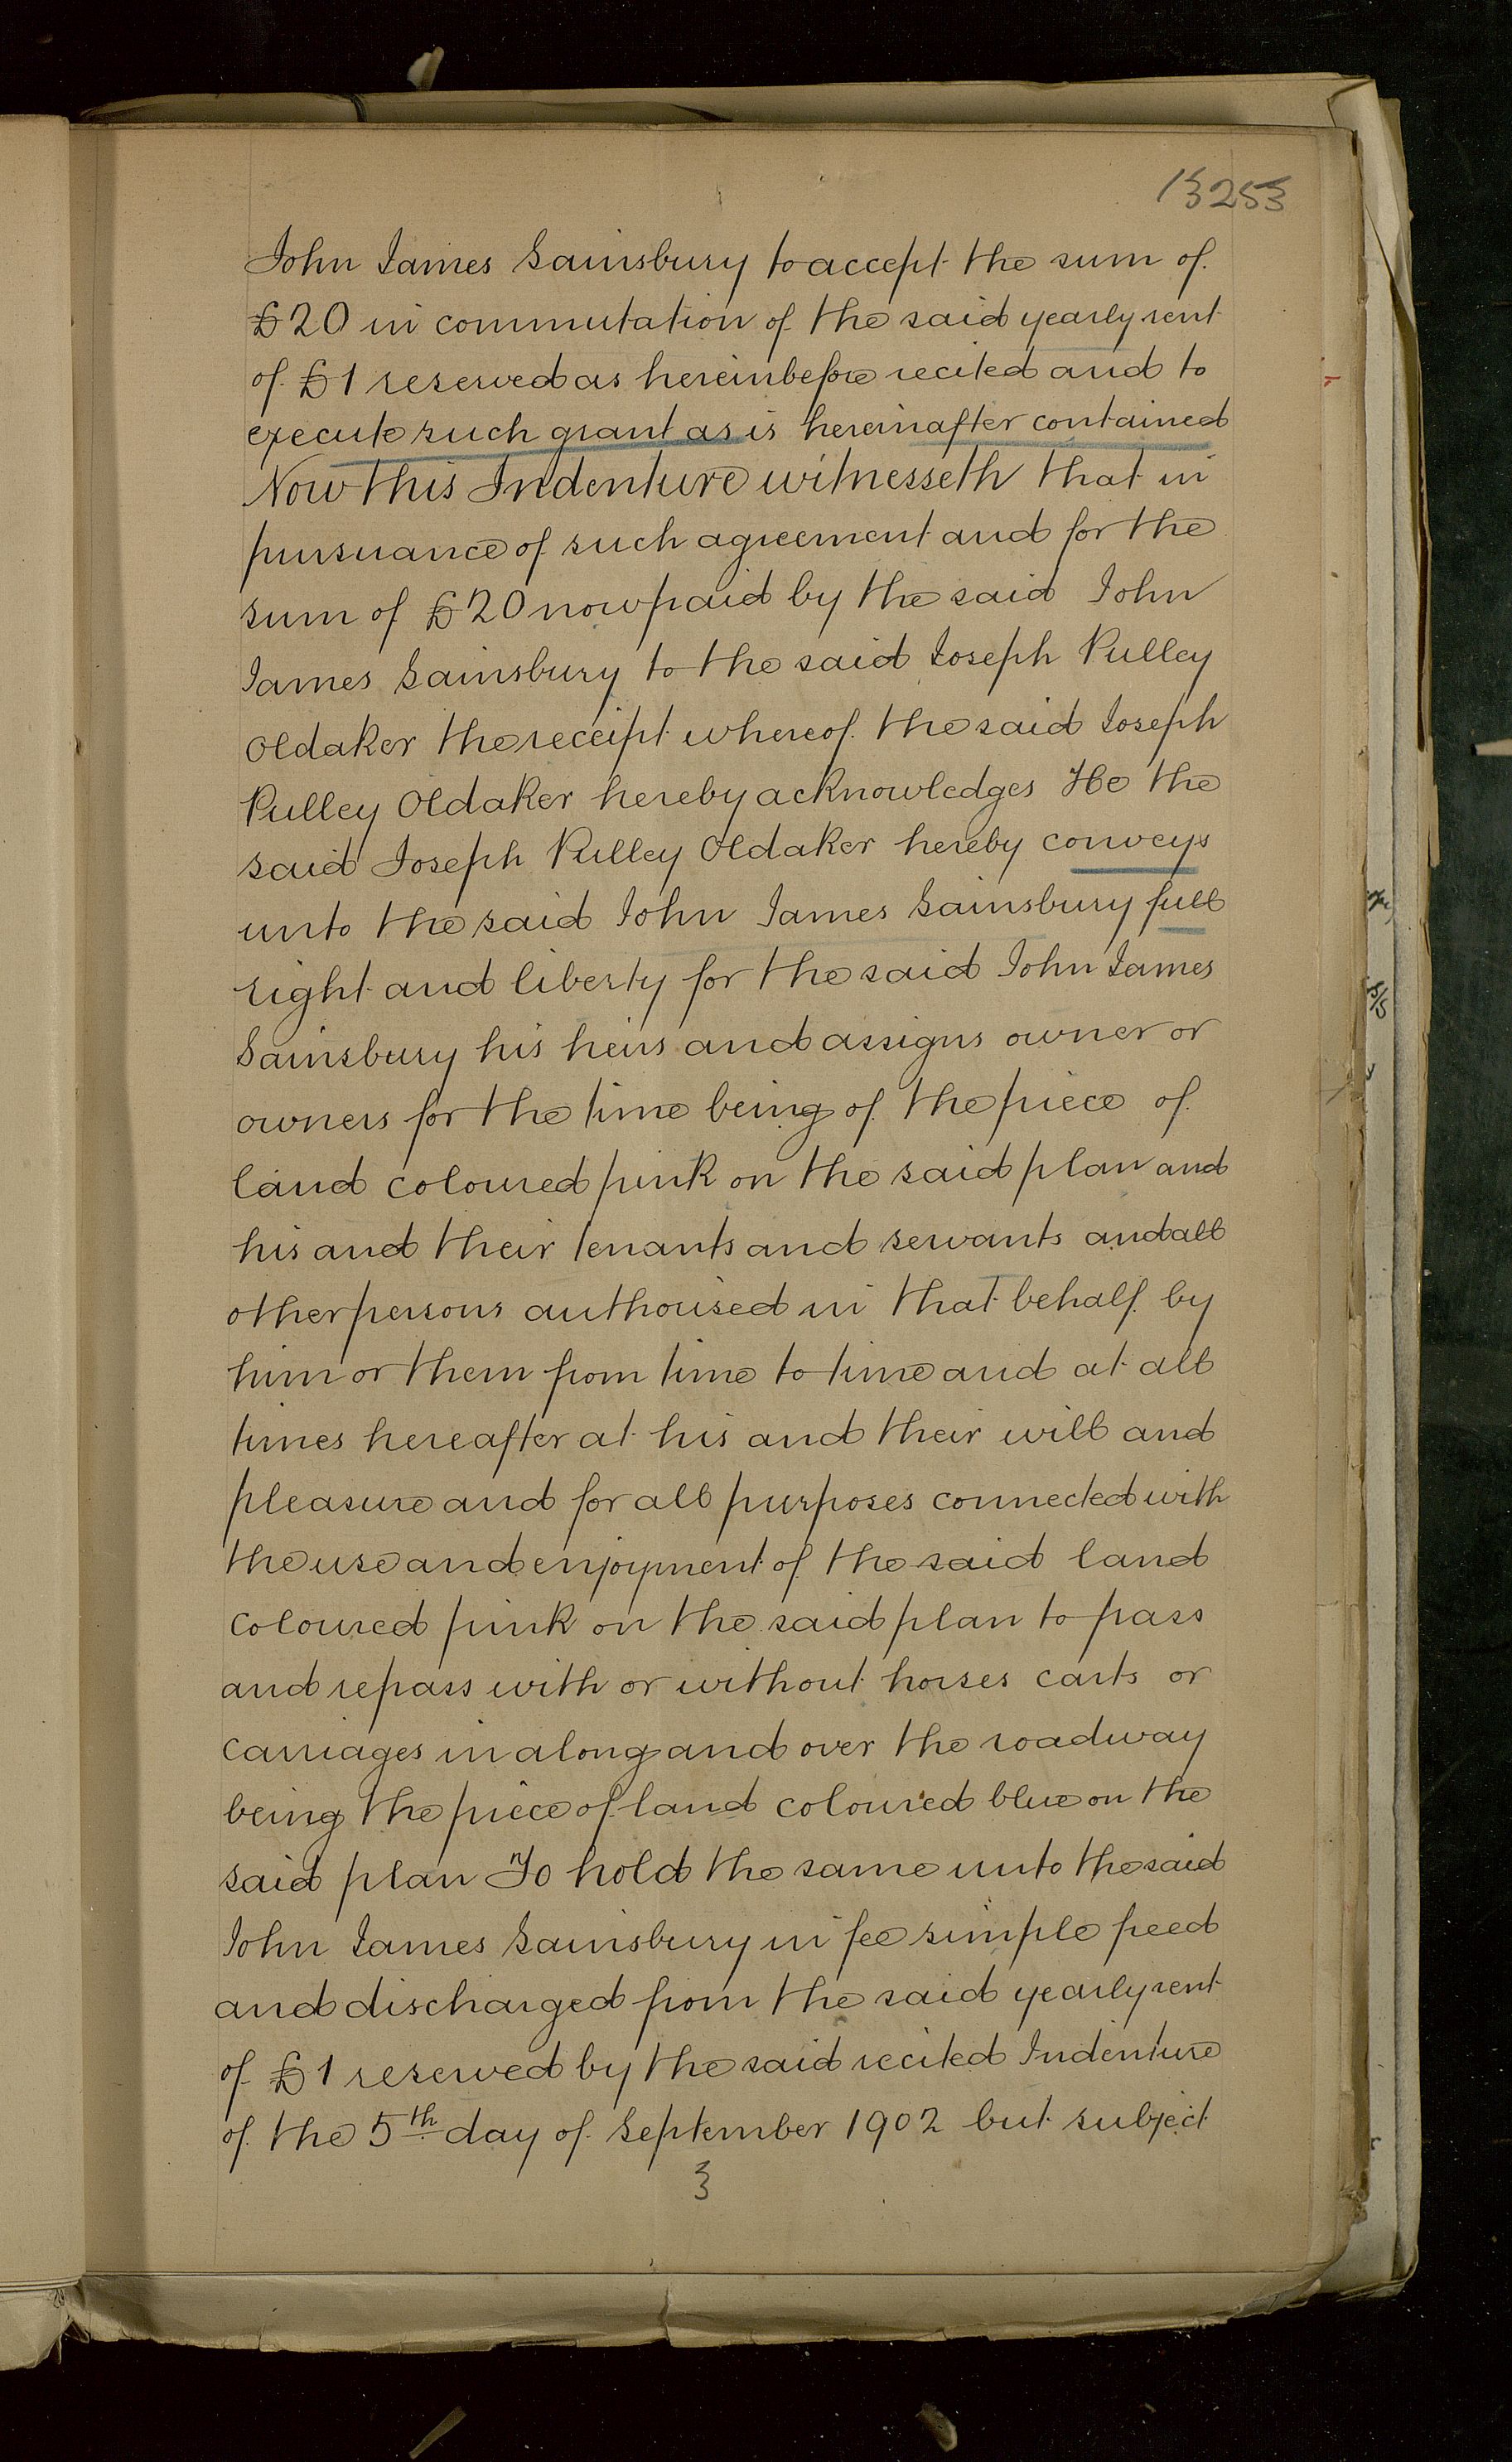 13253
John James Sainsbury to accept the sum of
£20 in commutation of the said yearly rent
of £1 reserved as hereinbefore recited and to
execute such grant as is hereinafter contained
Now this Indenture witnesseth that in
pursuance of such agreement and for the
sum of £20 now paid by the said John
James Sainsbury to the said Joseph Pulley
Oldaker the receipt whereof the said Joseph
Pulley Oldaker hereby acknowledges He the
said Joseph Pulley Oldaker hereby conveys
unto the said John James Sainsbury full
right and liberty for the said John James
Sainsbury his heirs and assigns owner or
owners for the time being of the piece of
land coloured pink on the said plan and
his and their tenants and servants and all
other persons authorised in that behalf by
him or them from time to time and at all
times hereafter at his and their will and
pleasure and for all purposes connected with
the use and enjoyment of the said land
coloured pink on the said plan to pass
and repass with or without horses carts or
carriages in along and over the roadway
being the piece of land coloured blue on the
said plan To hold the same unto the said
John James Sainsbury in fee simple freed
and discharged from the said yearly rent
of £1 reserved by the said recited Indenture
of the 5th day of September 1902 but subject
3